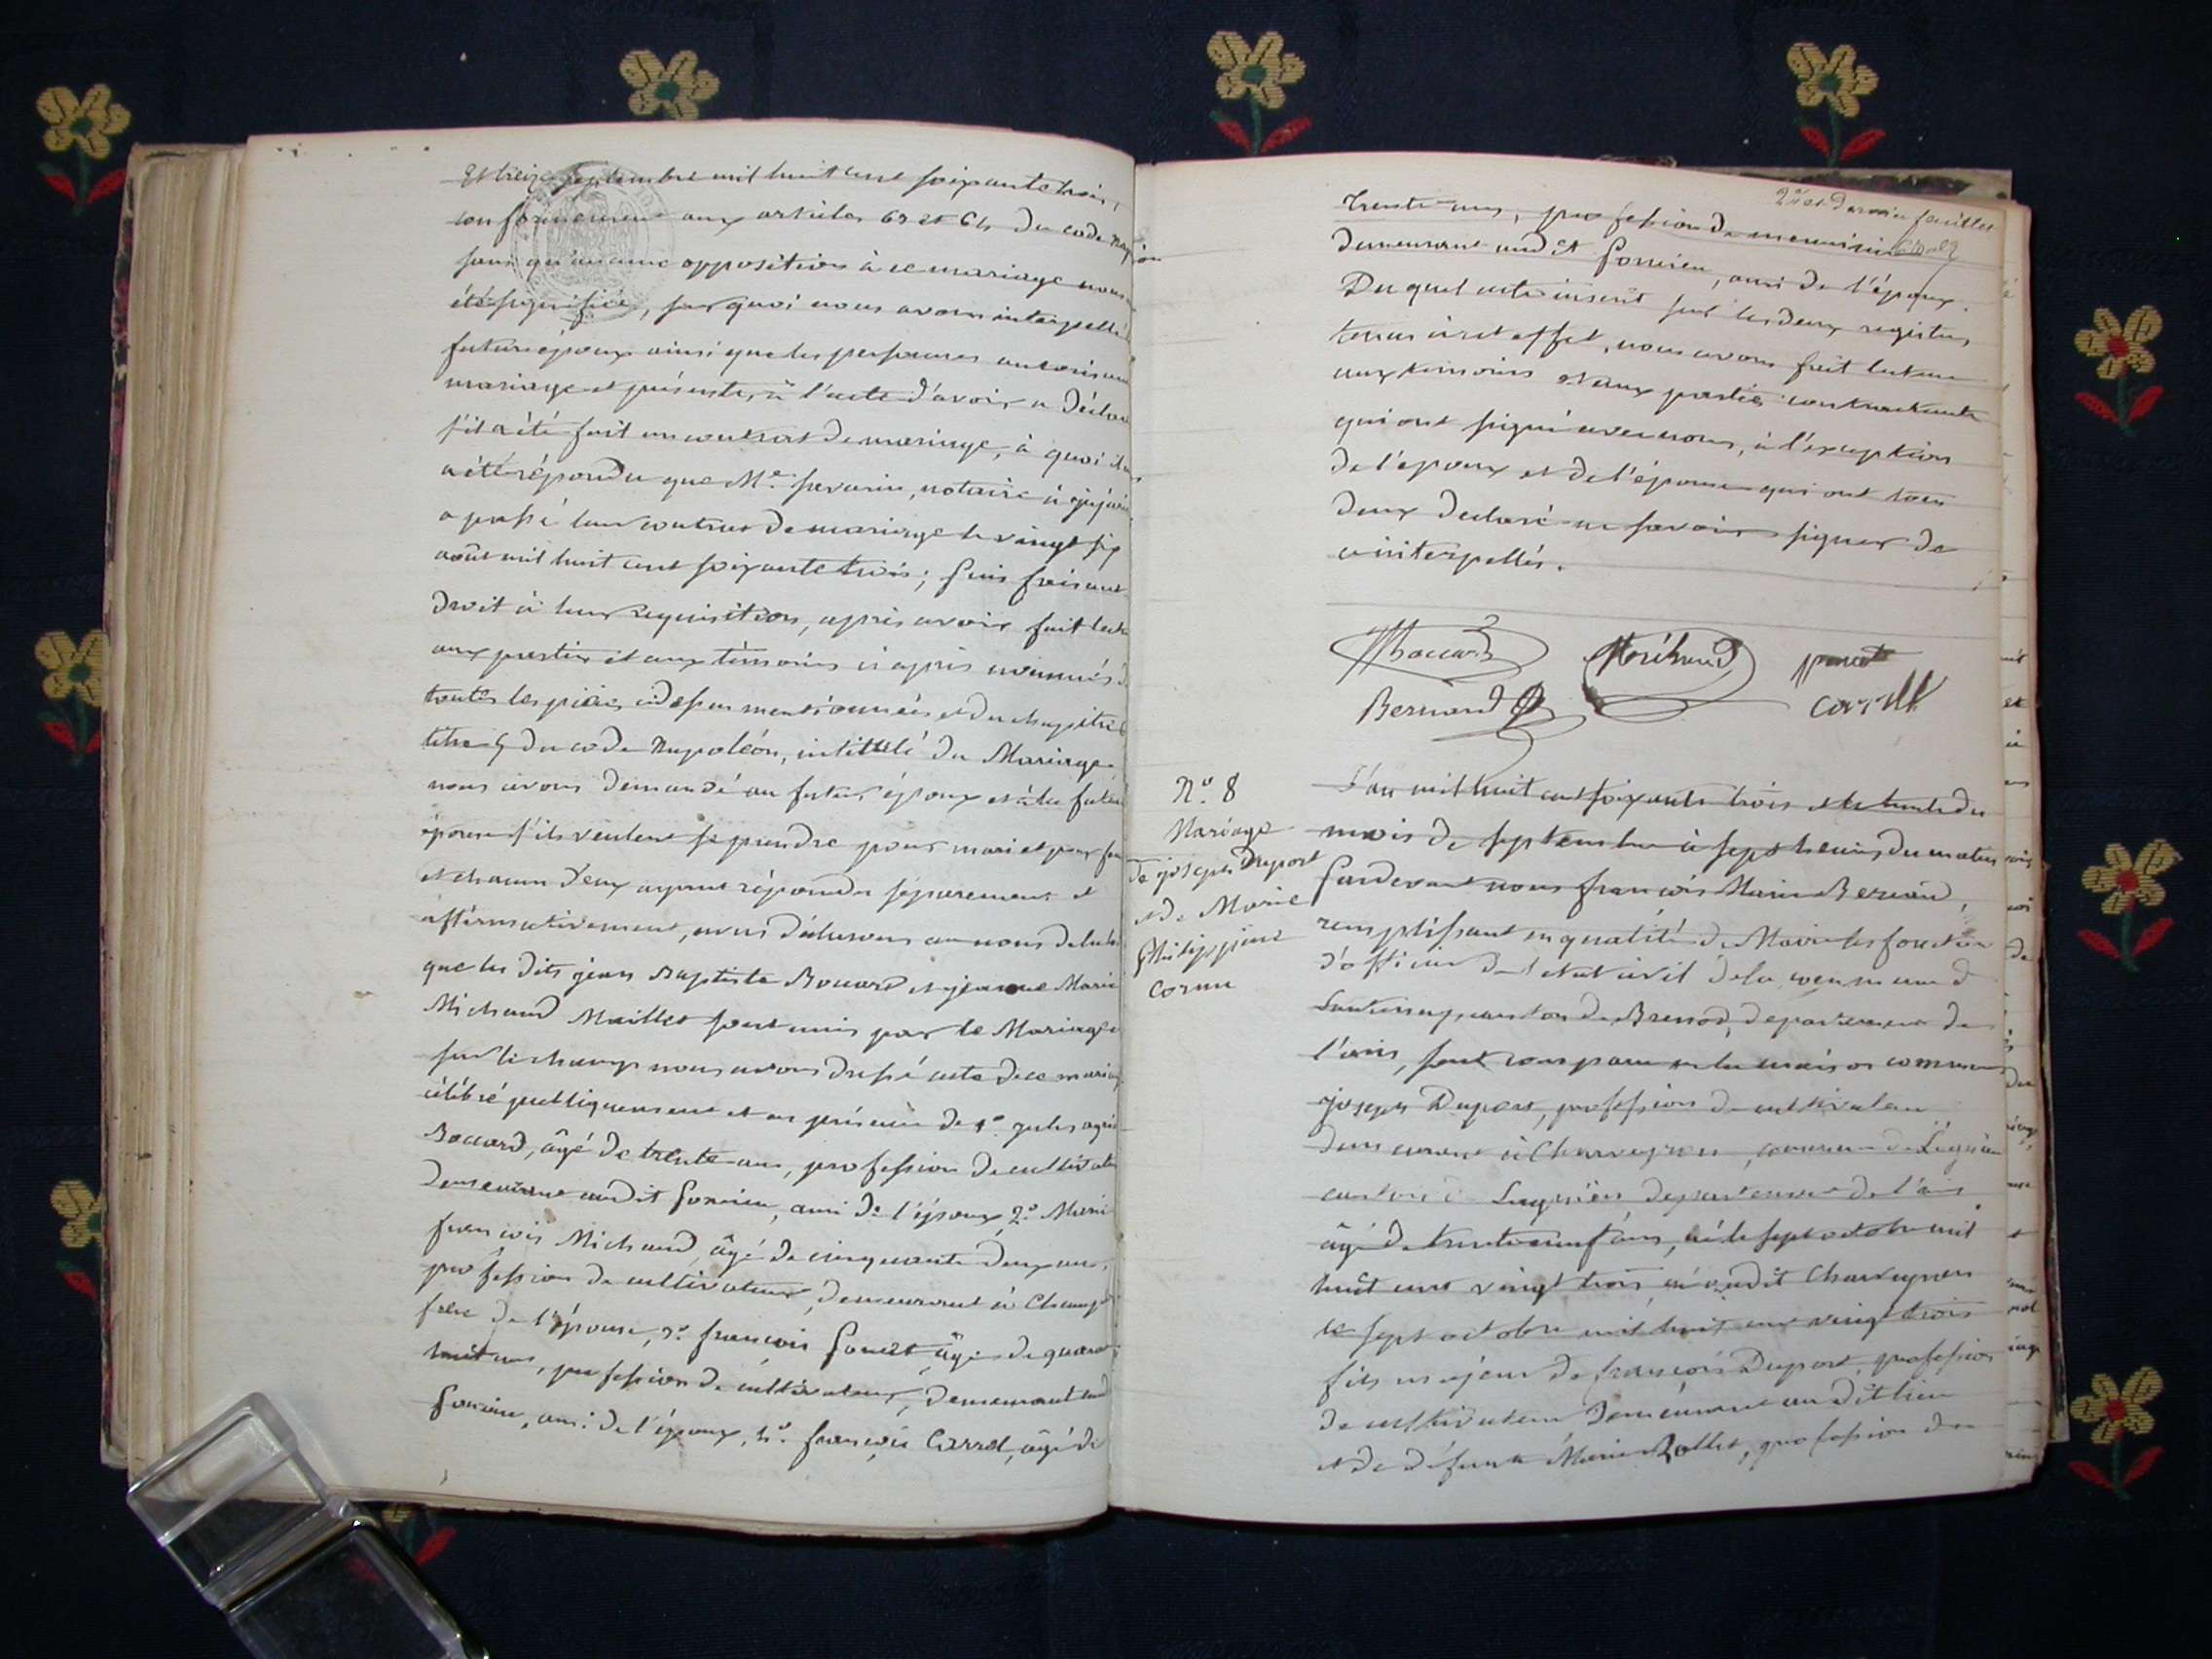 Et treize septembre mil huit cent soixante trois,
conformement aux articles 63 et 64 du code Nap
sans qu'aucune opposition à ce mariage nous
été signifiée, sur quoi nous avons interpellé
futurs époux ainsi que les personnes autorisant
mariage et présentes à l'acte d'avoir a déclarer
s'il a été fait un contrat de mariage, à quoi il
a été répondu que Me. Savarin, notaire à
a passé leur contrat de mariage le vingt six
août mil huit cent soixante trois; Puis faisant
droit à leur requisition, après avoir fait lect
aux parties et aux témoins ci après nommés d
toutes les pièces ci dessus mentionnées et du chapitre 6
titre 5 du code Napoléon, intitulé du Mariage
nous avons demandé au futur époux et à la future
épouse s'ils veulent se prendre pour mari et pour fem
et chacun d'eux ayant répondu séparement et
affirmativement, avons déclarons au nous de la loi
que les dits jean Baptiste Boccard et jeanne Marie
Michaud Maillet sont unis par le Mariage
sur le champ nous avons dressé acte de ce mariage
célébré publiquement et en présence de 1o. jules
Boccard, âgé de trente ans, profession de cultivate
demeurant audit Sonrieu, ami de l'époux, 2o. Marie
françois Michaud, âgé de cinquante deux ans,
profession de cultivateur, demeurant à Champ
frère de l'épouse, 3o. françois Poncet âgé de quarante
huit ans, profession de cultivateur, demeurant aud
ami de l'époux, 4o. françois Carrel, âgé de
2e et dernier feuillet
trente ans, profession de menuisier
demeurant audit, ami de l'époux.
Du quel acte inscrit sur les deux registres
tenus à cet effet, nous avons fait lecture
aux témoins et aux parties contractantes
qui ont signé avec nous, à l'exception
de l'époux et de l'épouse qui ont tous
deux declaré ne savoir signer de
ce interpellés.
Boccard Michaud poncet
Bernard carrel
No. 8
Mariage
de joseph Duport
et de Marie
Philippine
Cornu
L'an mil huit cent soixante trois et le trente du
mois de septembre à sept heures du matin
Pardevant nous françois Marie Bernard,
remplissant en qualité de Maire les fonctions
d'officier de l'etat civil de la commune d
canton de Brenod, departement de
l'ain, sont comparu en la maison commune
joseph Duport, profession de cultivateur
demeurant à Charveyron, commune de Lagnieu
canton de Lagnieu, departement de l'ain
âgé de trente neuf ans, né le sept octobre mil
huit cent vingt trois, né audit Charveyron
le sept octobre mil huit cent vingt trois
fils majeur de françois Duport, profession
de cultivateur demeurant au dit lieu
et de défunte Marie Rollet, profession de